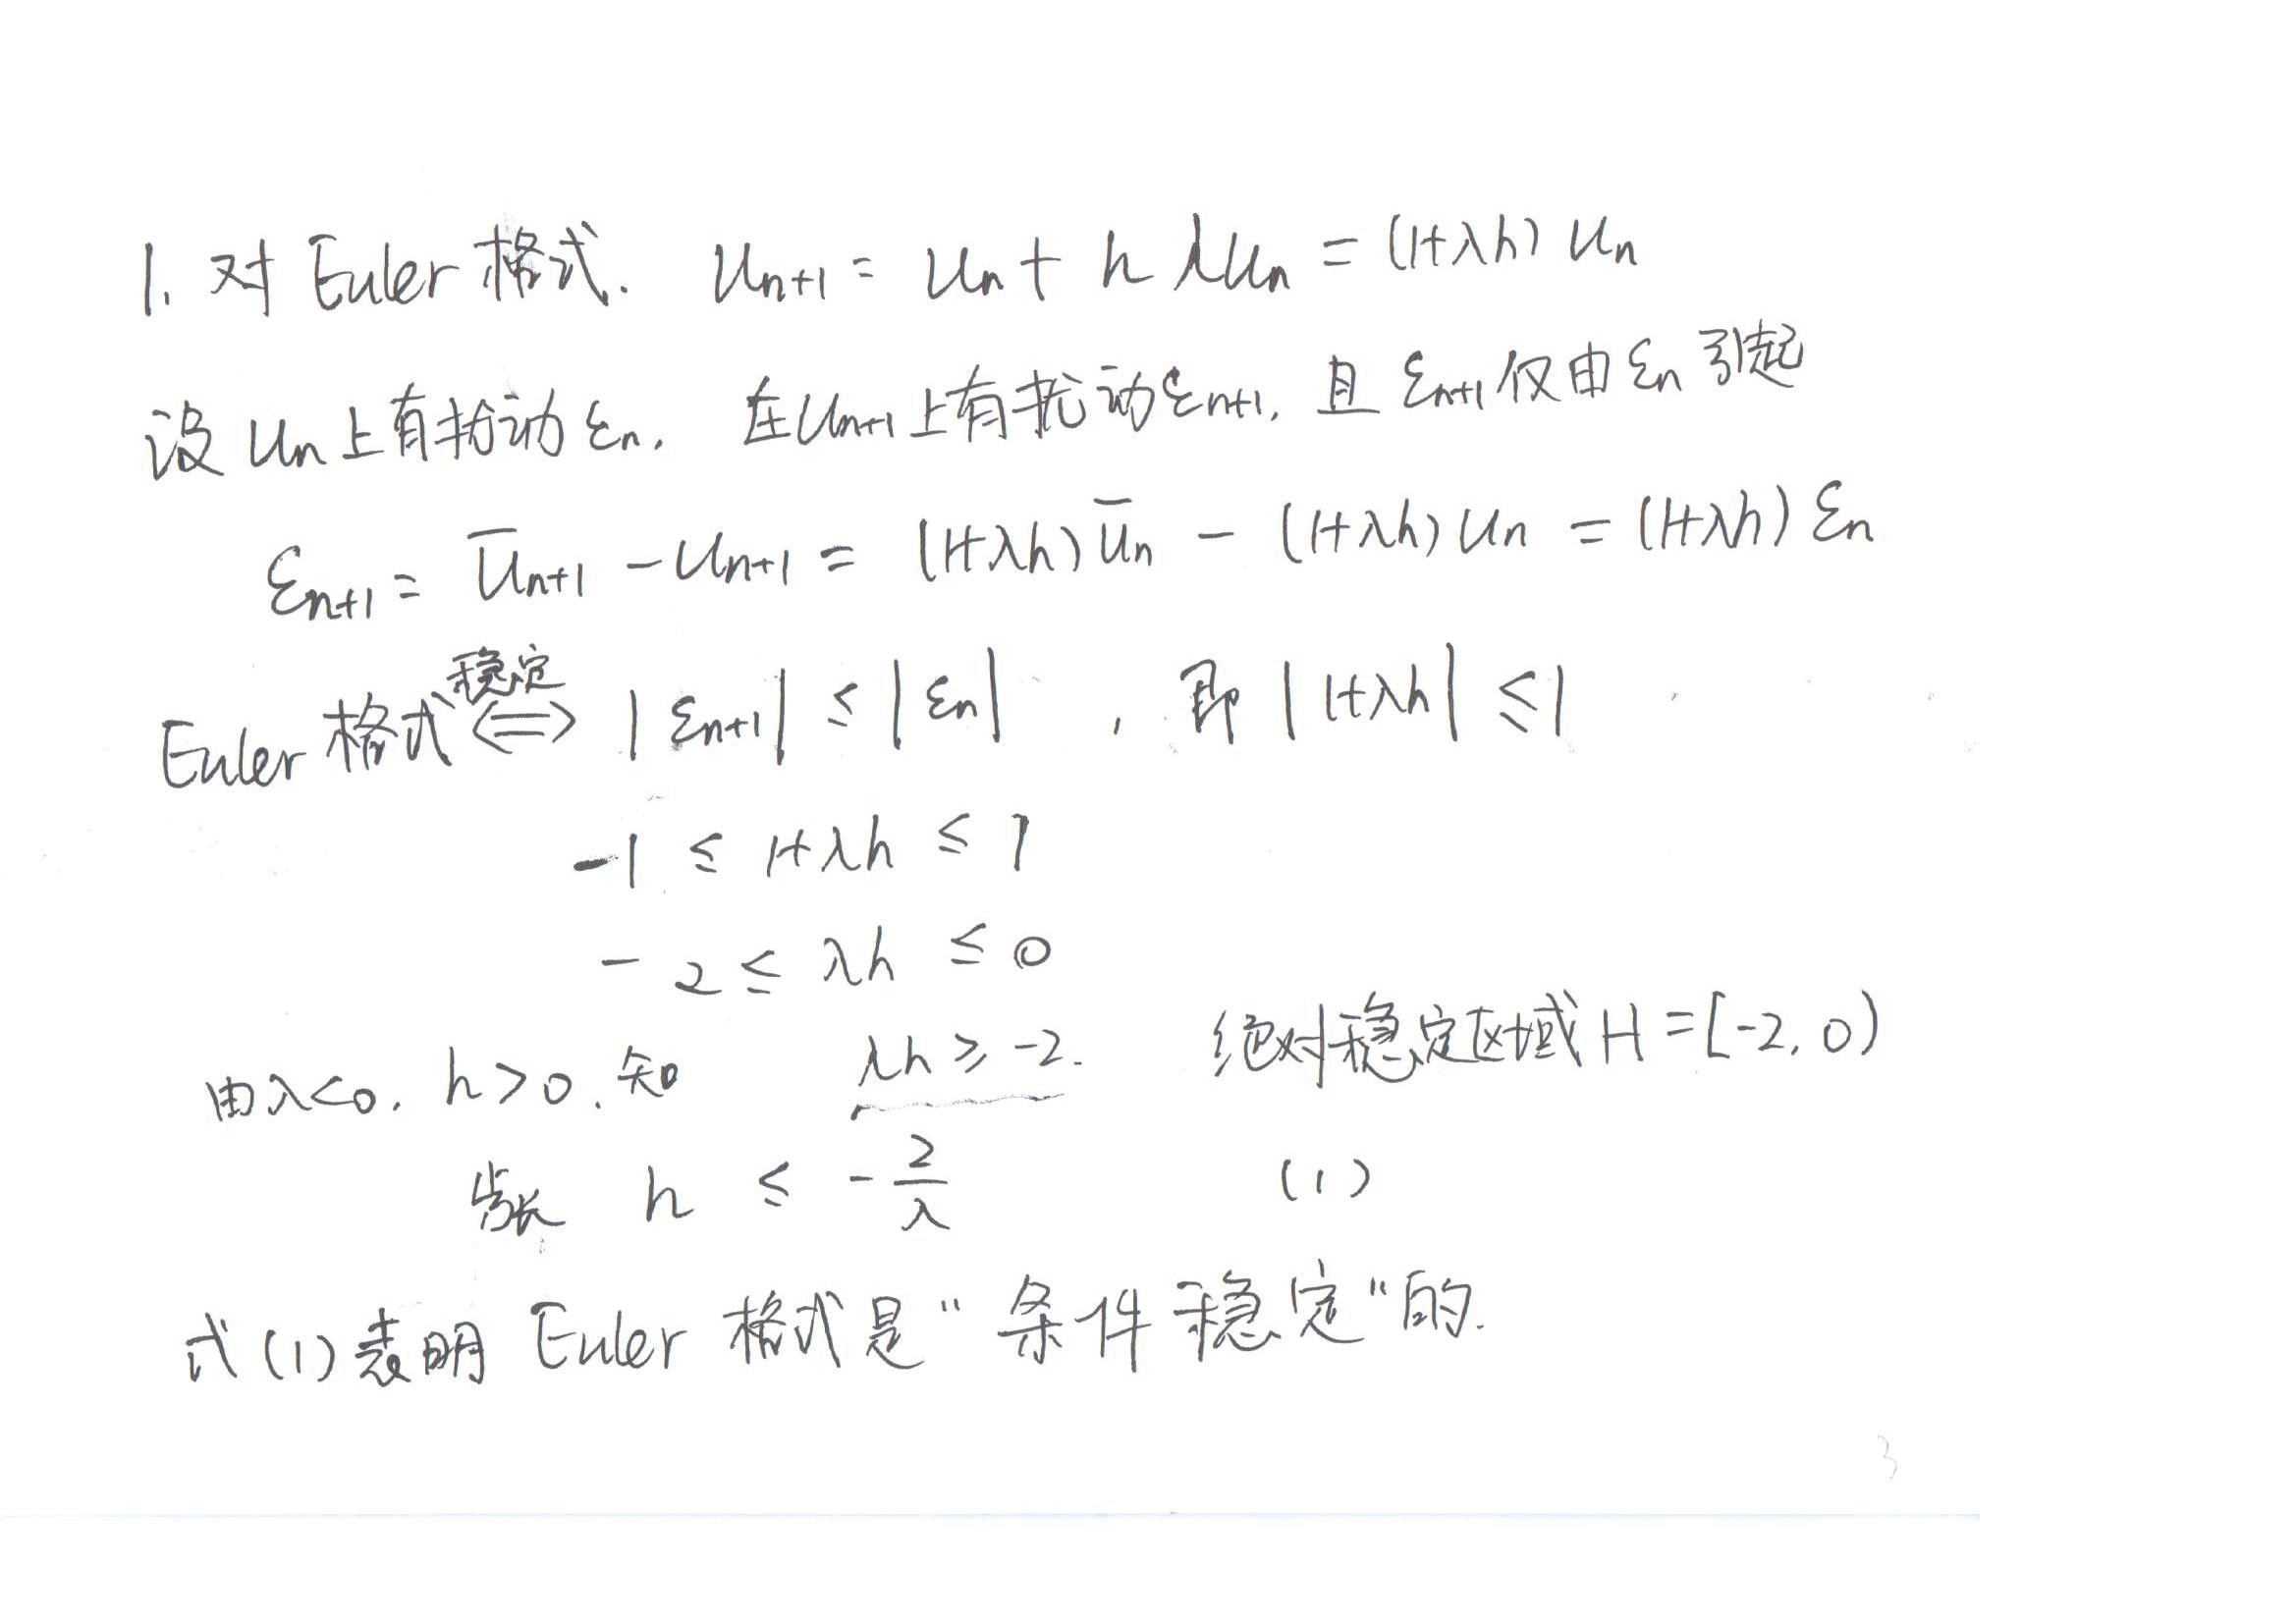 1. 对 Euler 格式. Uₙ₊₁ = Uₙ + h λUₙ = (1+λh) Uₙ
设 Uₙ 上有扰动 εₙ, 在 Uₙ₊₁ 上有扰动 εₙ₊₁, 且 εₙ₊₁ 仅由 εₙ 引起
εₙ₊₁ = Ūₙ₊₁ - Uₙ₊₁ = (1+λh) Ūₙ - (1+λh) Uₙ = (1+λh) εₙ
Euler 格式 稳定 <=> |εₙ₊₁| ≤ |εₙ| , 即 |1+λh| ≤ 1
-1 ≤ 1+λh ≤ 1
-2 ≤ λh ≤ 0
由 λ<0, h>0, 知 λh ≥ -2. 绝对稳定区域 H = [-2, 0)
步长 h ≤ -2/λ (1)
式(1)表明 Euler 格式是"条件稳定"的.
3